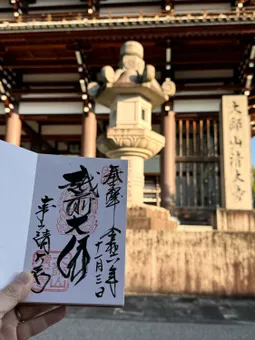 大師山清大寺
奉拝 令和六年
十一月三日
越前大佛
清大寺